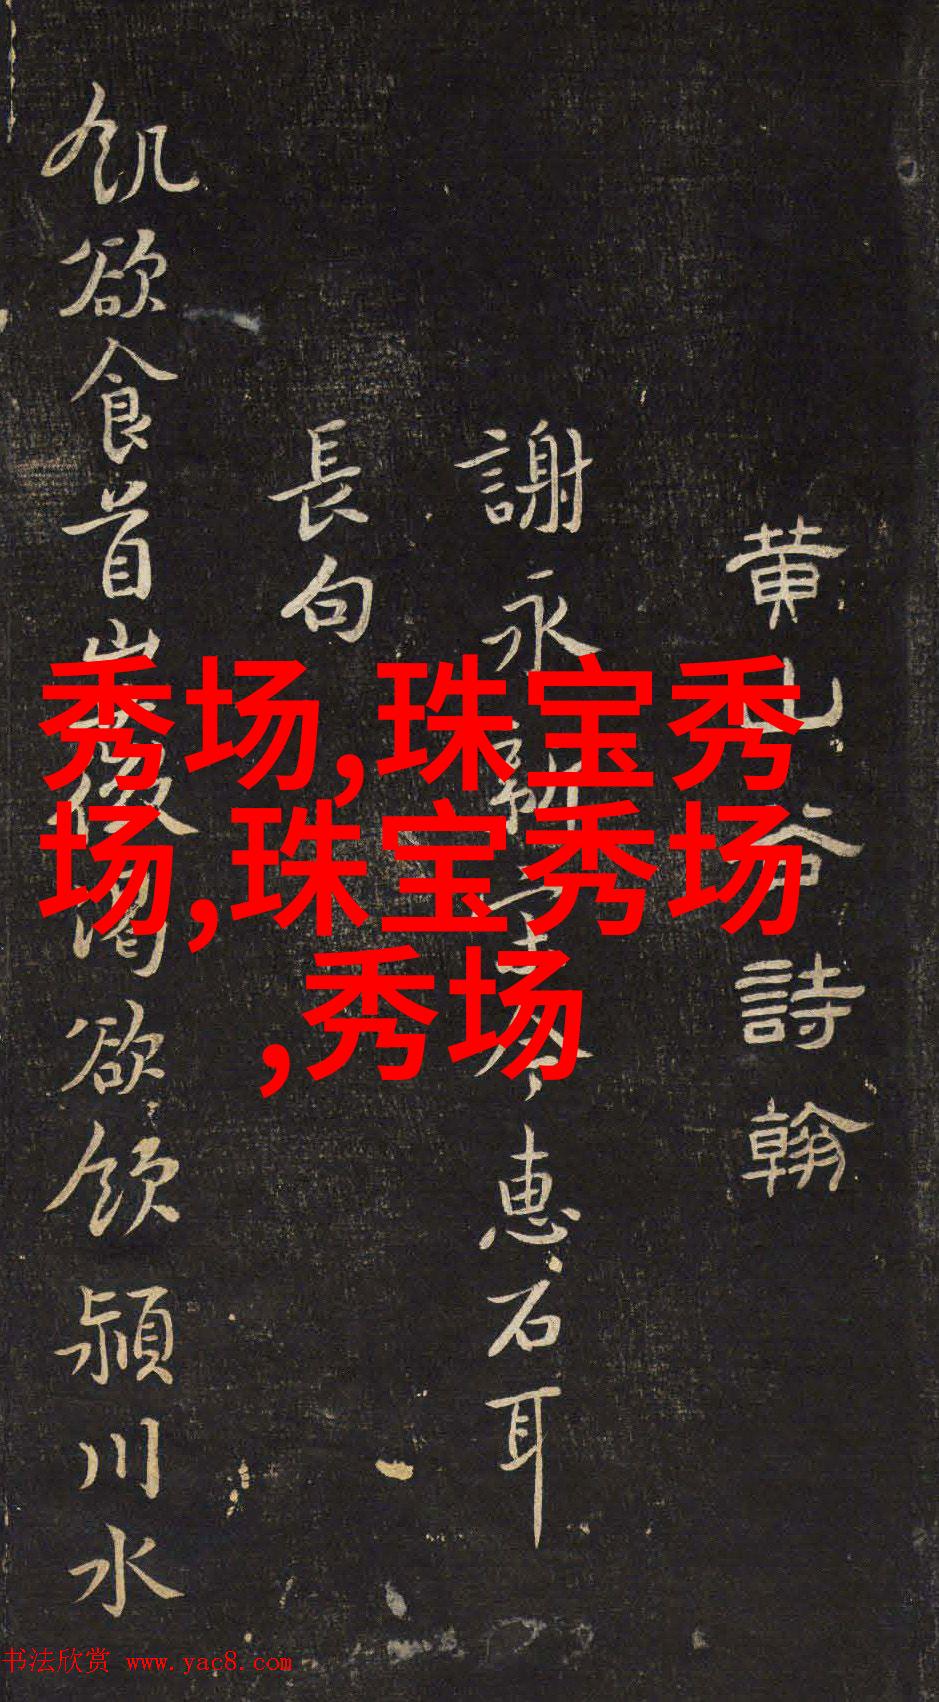 黄山谷詩翰
謝永新宰李惠石耳
長句
飢欲食首山薇渴欲飲潁川水
秀场,珠宝秀
场,珠宝秀场
,秀场
书法欣赏 www.yac8.com